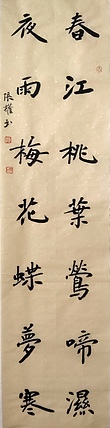 春江桃葉鶯啼濕
夜雨梅花蝶夢寒
張權书